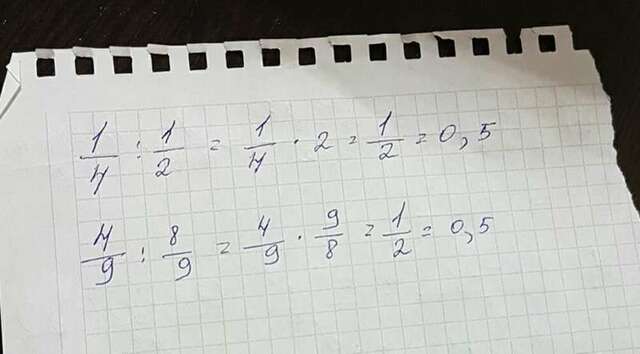 1/4 : 1/2 = 1/4 · 2 = 1/2 = 0,5
4/9 : 8/9 = 4/9 · 9/8 = 1/2 = 0,5